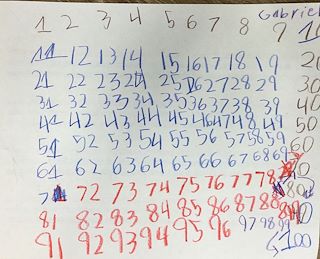 Gabriel
1 2 3 4 5 6 7 8 9 10
11 12 13 14 15 16 17 18 19 20
21 22 23 24 25 26 27 28 29 30
31 32 33 34 35 36 37 38 39 40
41 42 43 44 45 46 47 48 49 50
51 52 53 54 55 56 57 58 59 60
61 62 63 64 65 66 67 68 69
72 73 74 75 76 77 78 80
81 82 83 84 85 86 87 88
91 92 93 94 95 96 97 98 99 100